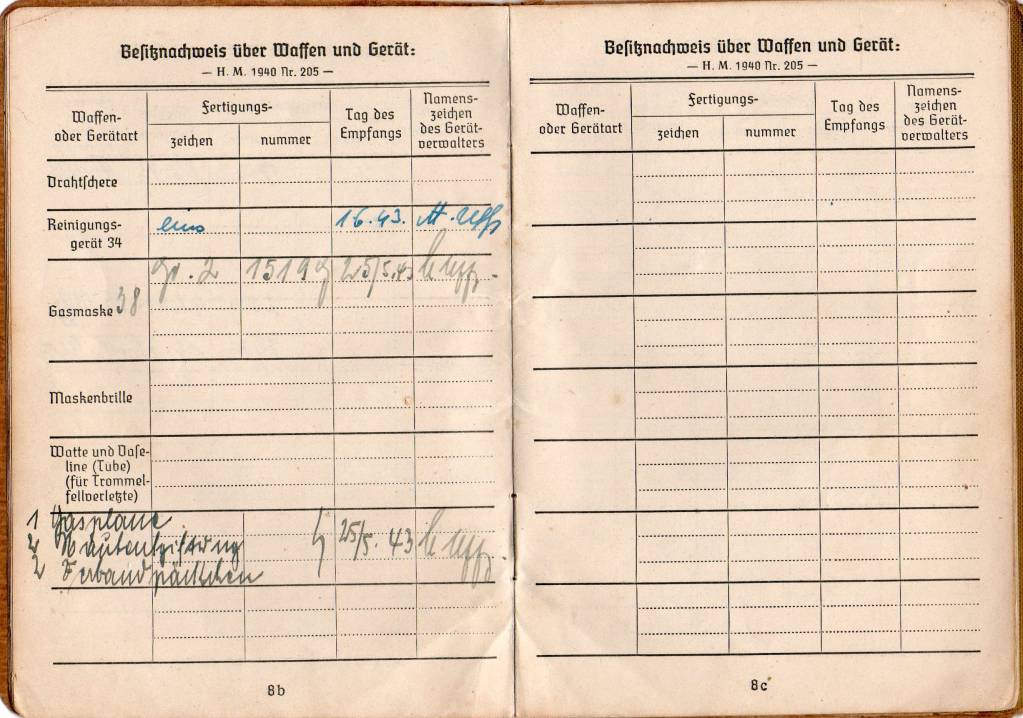 Besitznachweis über Waffen und Gerät:
— H. M. 1940 Nr. 205 —
Waffen-
oder Gerätart
Fertigungs-
zeichen
nummer
Tag des
Empfangs
Namens-
zeichen
des Gerät-
verwalters
Drahtschere
Reinigungs-
gerät 34
eins
1 6. 43.
Uffz
Gasmaske 38
gr. 2
1519
25/5.43
Uffz.
Maskenbrille
Watte und Vase-
line (Tube)
(für Trommel-
fellverletzte)
1 Gasplane
2 Hautentgiftung
25/5. 43
Uffz.
2 Verbandpäckchen
8b
Besitznachweis über Waffen und Gerät:
— H. M. 1940 Nr. 205 —
Waffen-
oder Gerätart
Fertigungs-
zeichen
nummer
Tag des
Empfangs
Namens-
zeichen
des Gerät-
verwalters
8c